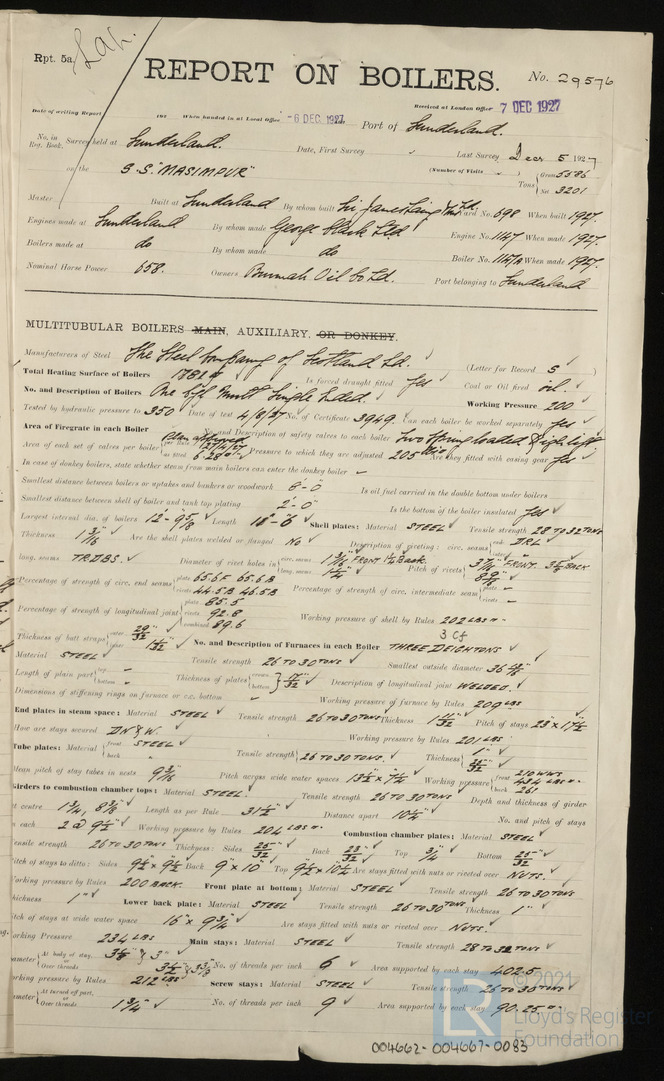 Rpt. 5a.
REPORT ON BOILERS.
No. 29576
Date of writing Report 192 When handed in at Local Office -6 DEC. 1927 Received at London Office 7 DEC 1927
Port of Sunderland.
No. in Reg. Book. Survey held at Sunderland. Date, First Survey Last Survey Decr 5 1927
on the S.S. "MASIMPUR" (Number of Visits ) Tons { Gross 5586
Net 3201
Master Built at Sunderland By whom built Sir James Laing & Sons Ltd. Yard No. 698 When built 1927.
Engines made at Sunderland By whom made George Clark Ltd Engine No. 1147 When made 1927.
Boilers made at do By whom made do Boiler No. 1147A When made 1927.
Nominal Horse Power 658. Owners Burmah Oil Co Ld. Port belonging to Sunderland
MULTITUBULAR BOILERS MAIN, AUXILIARY, OR DONKEY.
Manufacturers of Steel The Steel Company of Scotland Ld. (Letter for Record S )
Total Heating Surface of Boilers Is forced draught fitted Yes Coal or Oil fired oil.
No. and Description of Boilers One Cyl. Mult Single Ended Working Pressure 200
Tested by hydraulic pressure to 350 Date of test 4/8/27 No. of Certificate 3949. Can each boiler be worked separately Yes
Area of Firegrate in each Boiler Plan approved No. and Description of safety valves to each boiler Two Spring loaded High lift
Area of each set of valves per boiler Pressure to which they are adjusted 205 Are they fitted with easing gear Yes
In case of donkey boilers, state whether steam from main boilers can enter the donkey boiler –
Smallest distance between boilers or uptakes and bunkers or woodwork Is oil fuel carried in the double bottom under boilers
Smallest distance between shell of boiler and tank top plating 2'-0" Is the bottom of the boiler insulated Yes
Largest internal dia. of boilers 12'-9 5/8 Length Shell plates: Material STEEL Tensile strength 28 TO 32 TONS
Thickness 1 3/16 Are the shell plates welded or flanged No Description of riveting: circ. seams D.R.L
long. seams T.R.D.B.S. Diameter of rivet holes in circ. seams 1 3/16 FRONT 1 1/4 BACK. long. seams 1 1/4 Pitch of rivets FRONT. BACK
Percentage of strength of circ. end seams plate 65.6 F 65.6 B rivets 44.5 B 46.5 B Percentage of strength of circ. intermediate seam plate – rivets –
Percentage of strength of longitudinal joint plate 85.5 rivets 92.8 combined 89.6 Working pressure of shell by Rules 202 LBS
Thickness of butt straps outer 29/32 inner 1 1/32 No. and Description of Furnaces in each Boiler 3 CF THREE DEIGHTONS
Material STEEL Tensile strength 26 TO 30 TONS Smallest outside diameter
Length of plain part top – bottom – Thickness of plates crown bottom Description of longitudinal joint WELDED.
Dimensions of stiffening rings on furnace or c.c. bottom – Working pressure of furnace by Rules 209 LBS
End plates in steam space: Material STEEL Tensile strength 26 TO 30 TONS Thickness Pitch of stays 23" X 17 1/2
How are stays secured D.N & W. Working pressure by Rules 201 LBS
Tube plates: Material front STEEL back " Tensile strength 26 TO 30 TONS. Thickness 1"
Mean pitch of stay tubes in nests 9 3/16 Pitch across wide water spaces 13 1/2 x 7 1/2 Working pressure front back
Girders to combustion chamber tops: Material STEEL Tensile strength 26 TO 30 TONS Depth and thickness of girder
at centre Length as per Rule 31 1/2 Distance apart 10 1/4 No. and pitch of stays
in each 2 @ 9 1/2 Working pressure by Rules 204 LBS Combustion chamber plates: Material STEEL
Tensile strength 26 TO 30 TONS Thickness: Sides 23/32 Back 23/32 Top 3/4 Bottom 23/32
Pitch of stays to ditto: Sides 9 1/2 x 9 1/2 Back 9" x 10" Top 9 1/2 x 10 1/4 Are stays fitted with nuts or riveted over NUTS.
Working pressure by Rules 200 BACK. Front plate at bottom: Material STEEL Tensile strength 26 TO 30 TONS
Thickness 1" Lower back plate: Material STEEL Tensile strength 26 TO 30 TONS Thickness 1"
Pitch of stays at wide water space 16" x 9 3/4 Are stays fitted with nuts or riveted over NUTS.
Working Pressure 234 LBS Main stays: Material STEEL Tensile strength 28 TO 32 TONS
Diameter At body of stay, or Over threads No. of threads per inch 6 Area supported by each stay 402.5
Working pressure by Rules 212 LBS Screw stays: Material STEEL Tensile strength 26 TO 30 TONS
Diameter At turned off part, or Over threads 1 3/4 No. of threads per inch 9 Area supported by each stay 90.25
© 2021
Lloyd's Register
Foundation
004662-004667-0083